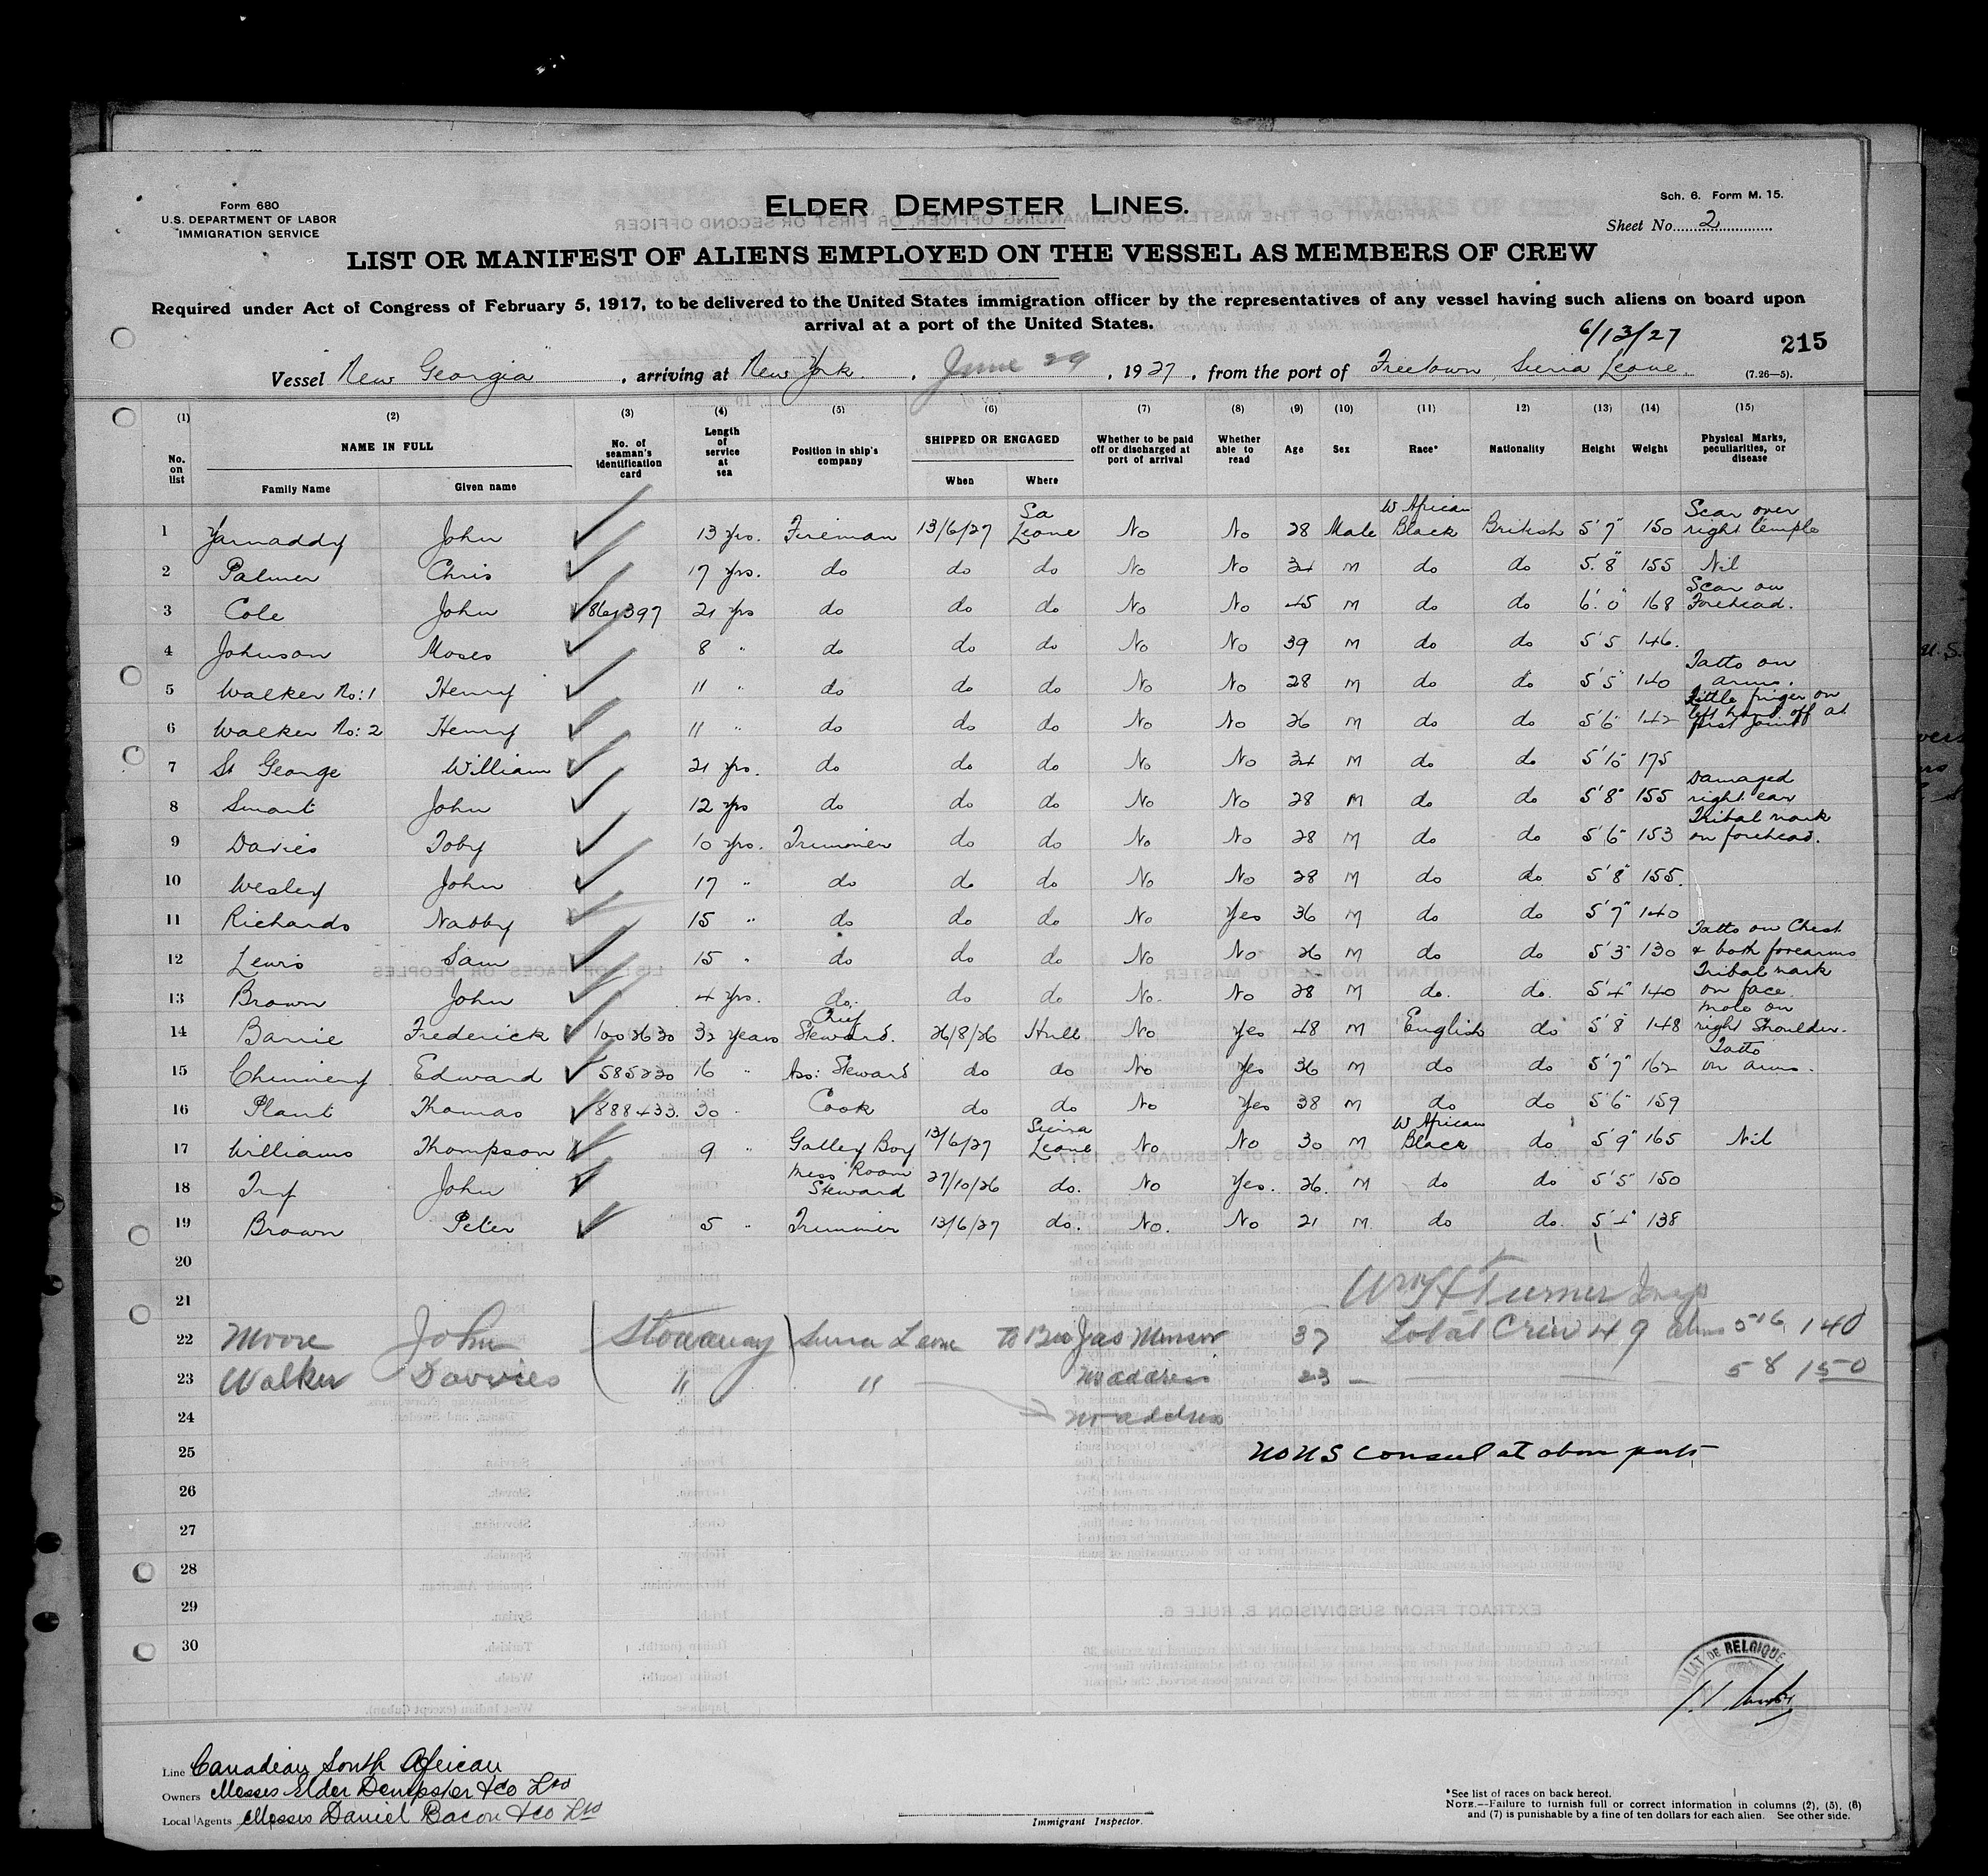 Form 680
U.S. DEPARTMENT OF LABOR
IMMIGRATION SERVICE
ELDER DEMPSTER LINES.
Sch. 6. Form M. 15.
Sheet No. 2
LIST OR MANIFEST OF ALIENS EMPLOYED ON THE VESSEL AS MEMBERS OF CREW
Required under Act of Congress of February 5, 1917, to be delivered to the United States immigration officer by the representatives of any vessel having such aliens on board upon
arrival at a port of the United States.
6/13/27
215
Vessel New Georgia, arriving at New York, June 29, 1927, from the port of Freetown, Sierra Leone. (7.26—5).
(1) (2) (3) (4) (5) (6) (7) (8) (9) (10) (11) 12) (13) (14) (15)
No. on list NAME IN FULL Family Name Given name No. of seaman's identification card Length of service at sea Position in ship's company SHIPPED OR ENGAGED When Where Whether to be paid off or discharged at port of arrival Whether able to read Age Sex Race* Nationality Height Weight Physical Marks, peculiarities, or disease
1 Yamaddy John 13 yrs. Fireman 13/6/27 Sa Leone No No 28 Male W African Black British 5'7" 150 Scar over right temple
2 Palmer Chris 17 yrs. do do do No No 34 M do do 5'.8" 155 Nil
3 Cole John 861397 21 yrs do do do No No 45 M do do 6'.0" 168 Scar on Forehead.
4 Johnson Moses 8 " do do do No No 39 M do do 5'5 146.
5 Walker No:1 Henry 11 " do do do No No 28 M do do 5'5" 140 Tatto on arms.
6 Walker No:2 Henry 11 " do do do No No 26 M do do 5'6" 142 Little finger on left hand off at first joint
7 St George William 21 yrs. do do do No No 34 M do do 5'10" 175
8 Smart John 12 yrs do do do No No 28 M do do 5'8" 155 Damaged right ear
9 Davies Toby 10 yrs. Trimmer do do No No 28 M do do 5'6" 153 Tribal mark on forehead.
10 Wesley John 17 " do do do No No 28 M do do 5'8" 155.
11 Richards Nabby 15 " do do do No Yes 36 M do do 5'7" 140
12 Lewis Sam 15 " do do do No No 26 M do do 5'3" 130 Tatto on Chest & both forearms
13 Brown John 4 yrs. do. do do No. No 28 M do. do. 5'4" 140 Tribal mark on face.
14 Barrie Frederick 1002630 32 years Chief Steward. 26/8/26 Hull No Yes 48 M English do 5'8" 148 Mole on right Shoulder.
15 Chinnery Edward 585220 16 " Ass: Steward do do No Yes 36 M do do 5'7" 162 Tatto on arms.
16 Plant Thomas 888433. 30 " Cook do do No Yes 38 M do do 5'6" 159
17 Williams Thompson 9 " Galley Boy 13/6/27 Sierra Leone No No 30 M W African Black do 5'9" 165 Nil
18 John Mess Room Steward 27/10/26 do. No Yes. 26. M do do 5'5" 150
19 Brown Peter 5 " Trimmer 13/6/27 do. No. No 21 M do do. 5'4" 138
20
21 Turner
22 Moore John (Stowaway) Sierra Leone to Bro Jas 37 Total Crew 49 5'6 140
23 Walker Davvies " " no address 23 5 8 150
24 no address
25 No US Consul at above port
26
27
28
29
30
CONSULAT DE BELGIQUE
Line Canadian South African
Owners Messrs Elder Dempster & Co Ltd
Local Agents Messrs Daniel Bacon & Co Ltd
Immigrant Inspector.
*See list of races on back hereof.
NOTE.—Failure to furnish full or correct information in columns (2), (5), (6)
and (7) is punishable by a fine of ten dollars for each alien. See other side.